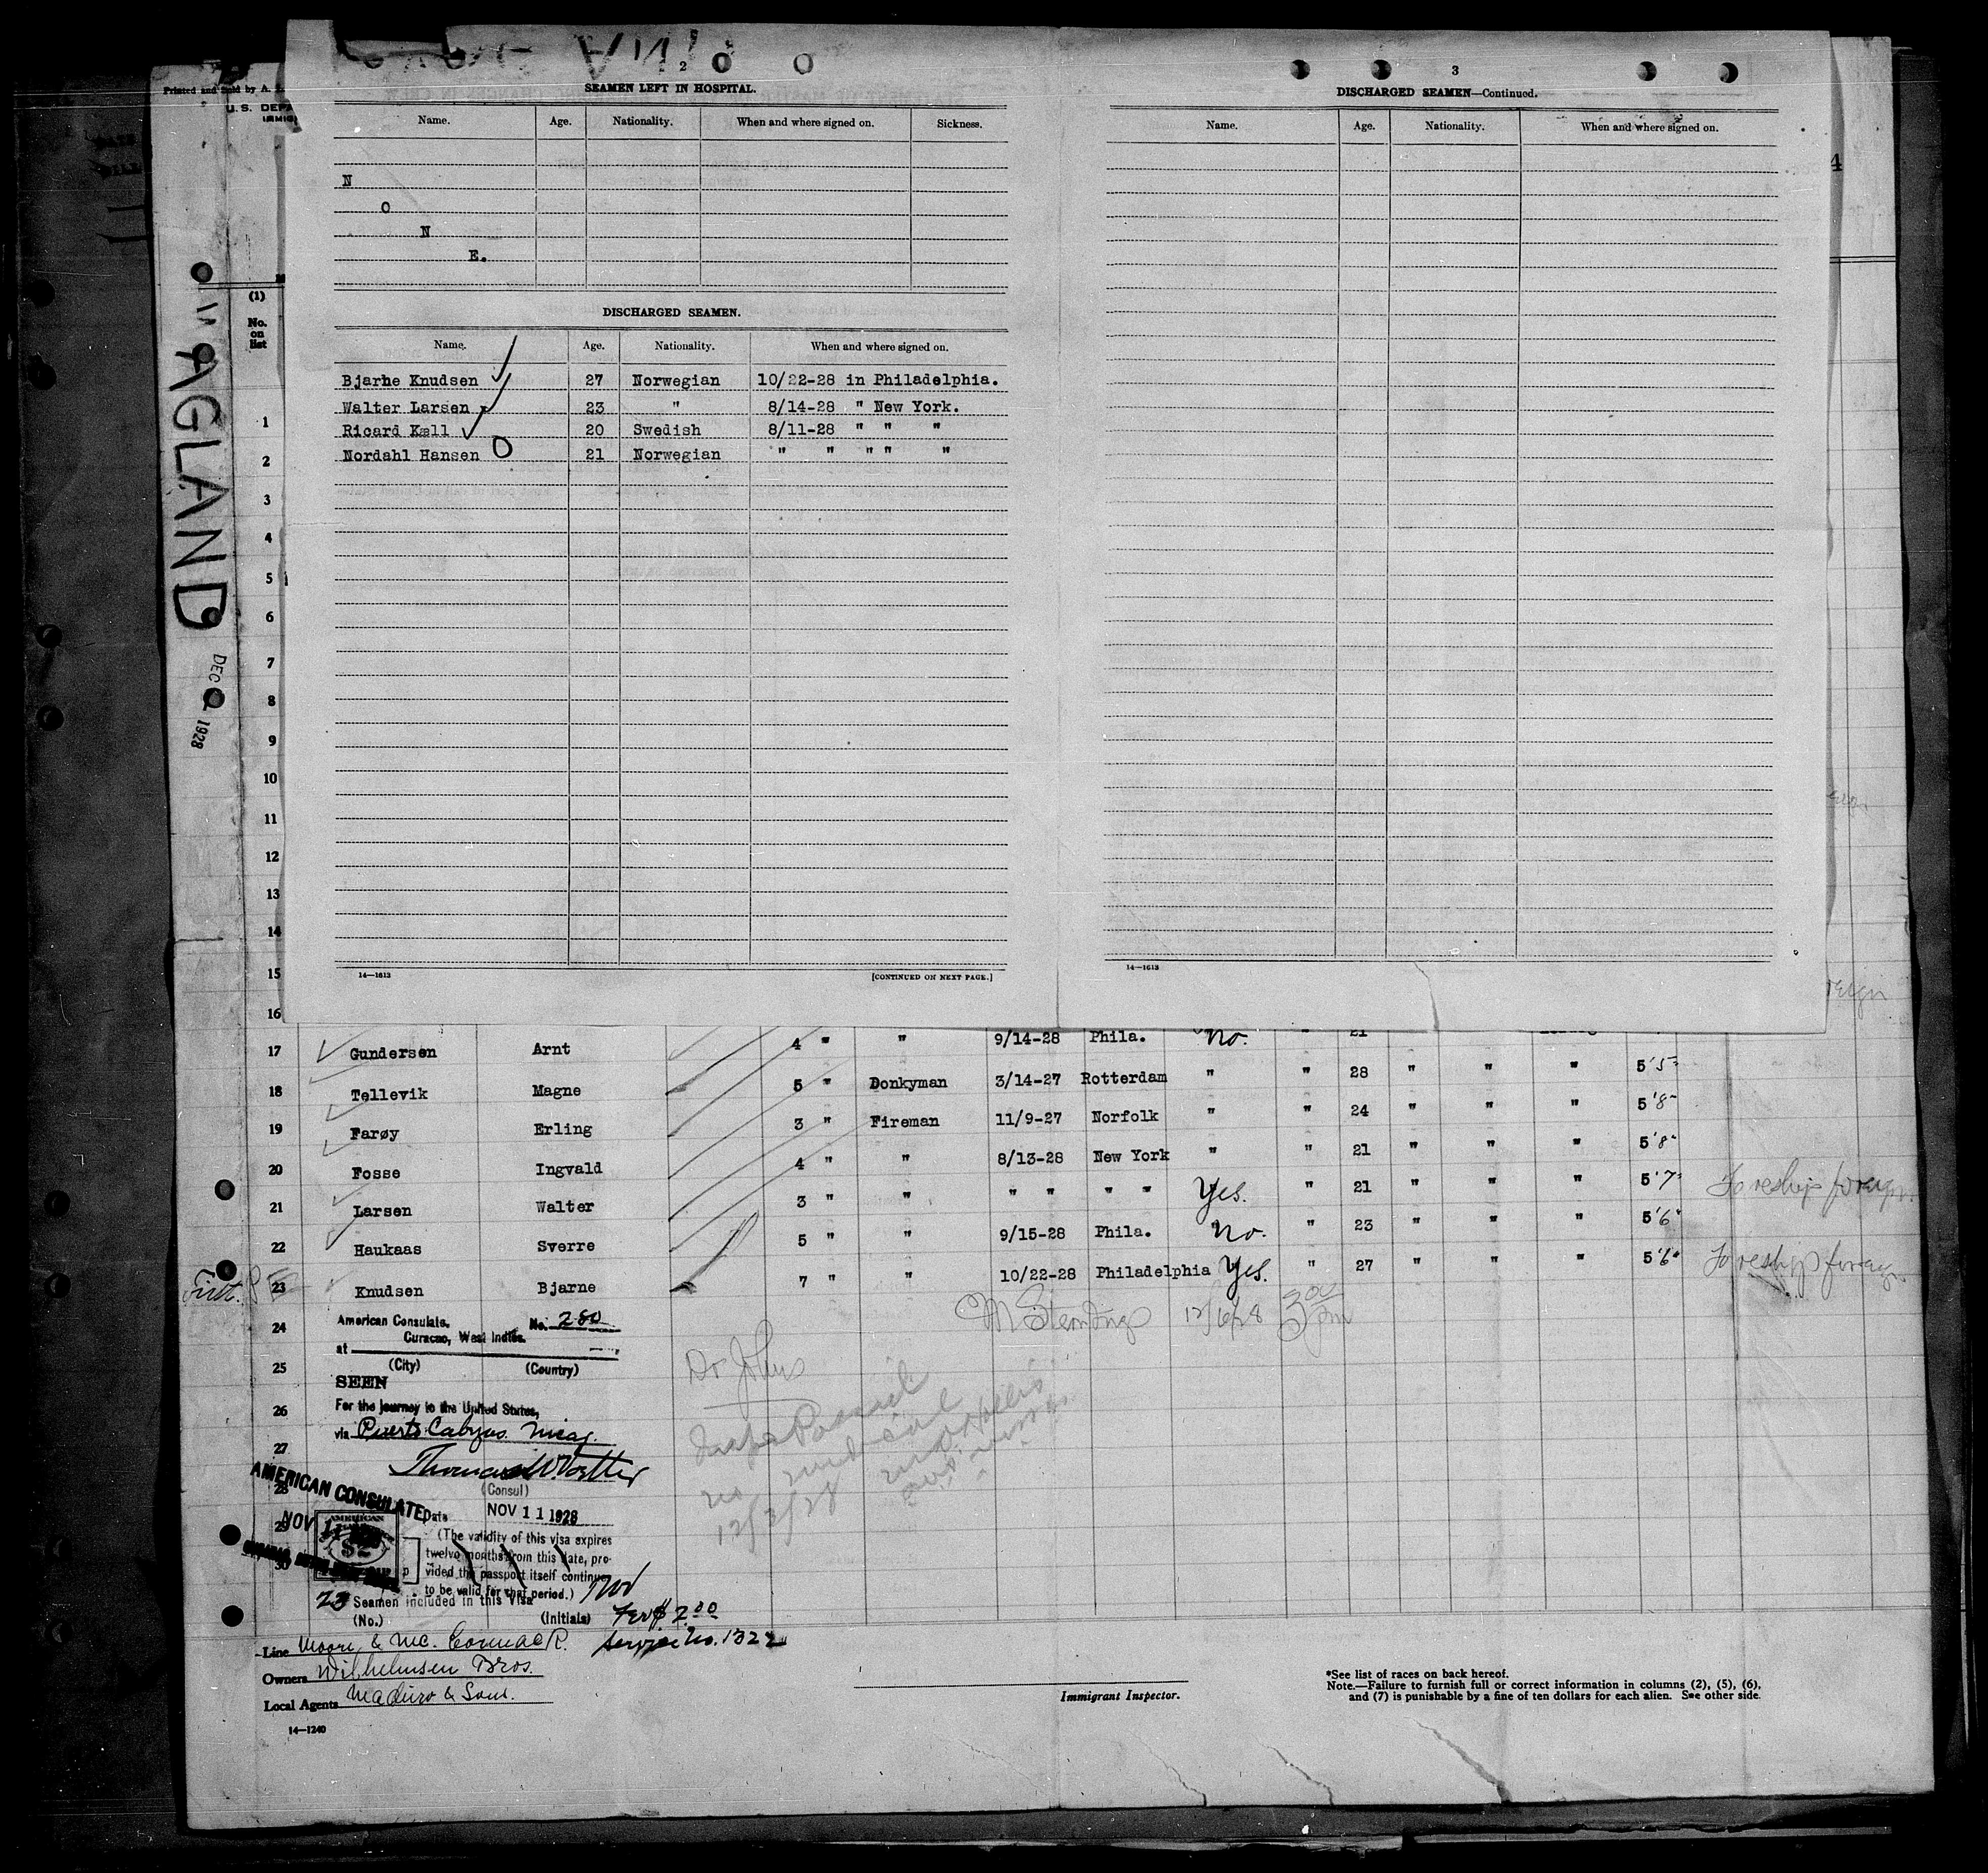 2
SEAMEN LEFT IN HOSPITAL.
Name. Age. Nationality. When and where signed on. Sickness.
N
O
N
E.
DISCHARGED SEAMEN.
Name. Age. Nationality. When and where signed on.
Bjarne Knudsen 27 Norwegian 10/22-28 in Philadelphia.
Walter Larsen 23 " 8/14-28 " New York.
Ricard Kæll 20 Swedish 8/11-28 " " "
Nordahl Hansen 21 Norwegian " " " " "
14—1613 [CONTINUED ON NEXT PAGE.]
3
DISCHARGED SEAMEN—Continued.
Name. Age. Nationality. When and where signed on.
14—1613
4
Printed and Sold by A.
U.S. DEPA
IMMIG
AGLAND
DEC 2 1928
(1)
No.
on
list
1
2
3
4
5
6
7
8
9
10
11
12
13
14
15
16
17 Gundersen Arnt 4 " " 9/14-28 Phila. No. " 21
18 Tellevik Magne 5 " Donkyman 3/14-27 Rotterdam " " 28 " " " 5'5"
19 Farøy Erling 3 " Fireman 11/9-27 Norfolk " " 24 " " " 5'8"
20 Fosse Ingvald 4 " " 8/13-28 New York " " 21 " " " 5'8"
21 Larsen Walter 3 " " " " " " Yes. " 21 " " " 5'7" To reship foreign.
22 Haukaas Sverre 5 " " 9/15-28 Phila. No. " 23 " " " 5'6"
23 Knudsen Bjarne 7 " " 10/22-28 Philadelphia Yes. " 27 " " " 5'6" To reship foreign
24
25
26
27
28
29
30
American Consulate, No. 280
Curacao, West Indies.
at
(City) (Country)
SEEN
For the journey to the United States,
via Puerto Cabezas Nicag.
(Consul)
AMERICAN CONSULATE
Date NOV 11 1928
NOV 11
AMERICAN
$2
(The validity of this visa expires
twelve months from this date, pro-
vided the passport itself continues
to be valid for that period.)
23 Seamen included in this Visa
(No.) (Initials)
Fee $ 2.00
Service No. 1322
12/6/28 3 00 pm
Dr Johns
Passed
medical
12/3/28
Line Moore & Mc. Cormack.
Owners Wilhelmsen Bros.
Local Agents Maduro & Sons.
14—1240
Immigrant Inspector.
*See list of races on back hereof.
Note.—Failure to furnish full or correct information in columns (2), (5), (6),
and (7) is punishable by a fine of ten dollars for each alien. See other side.